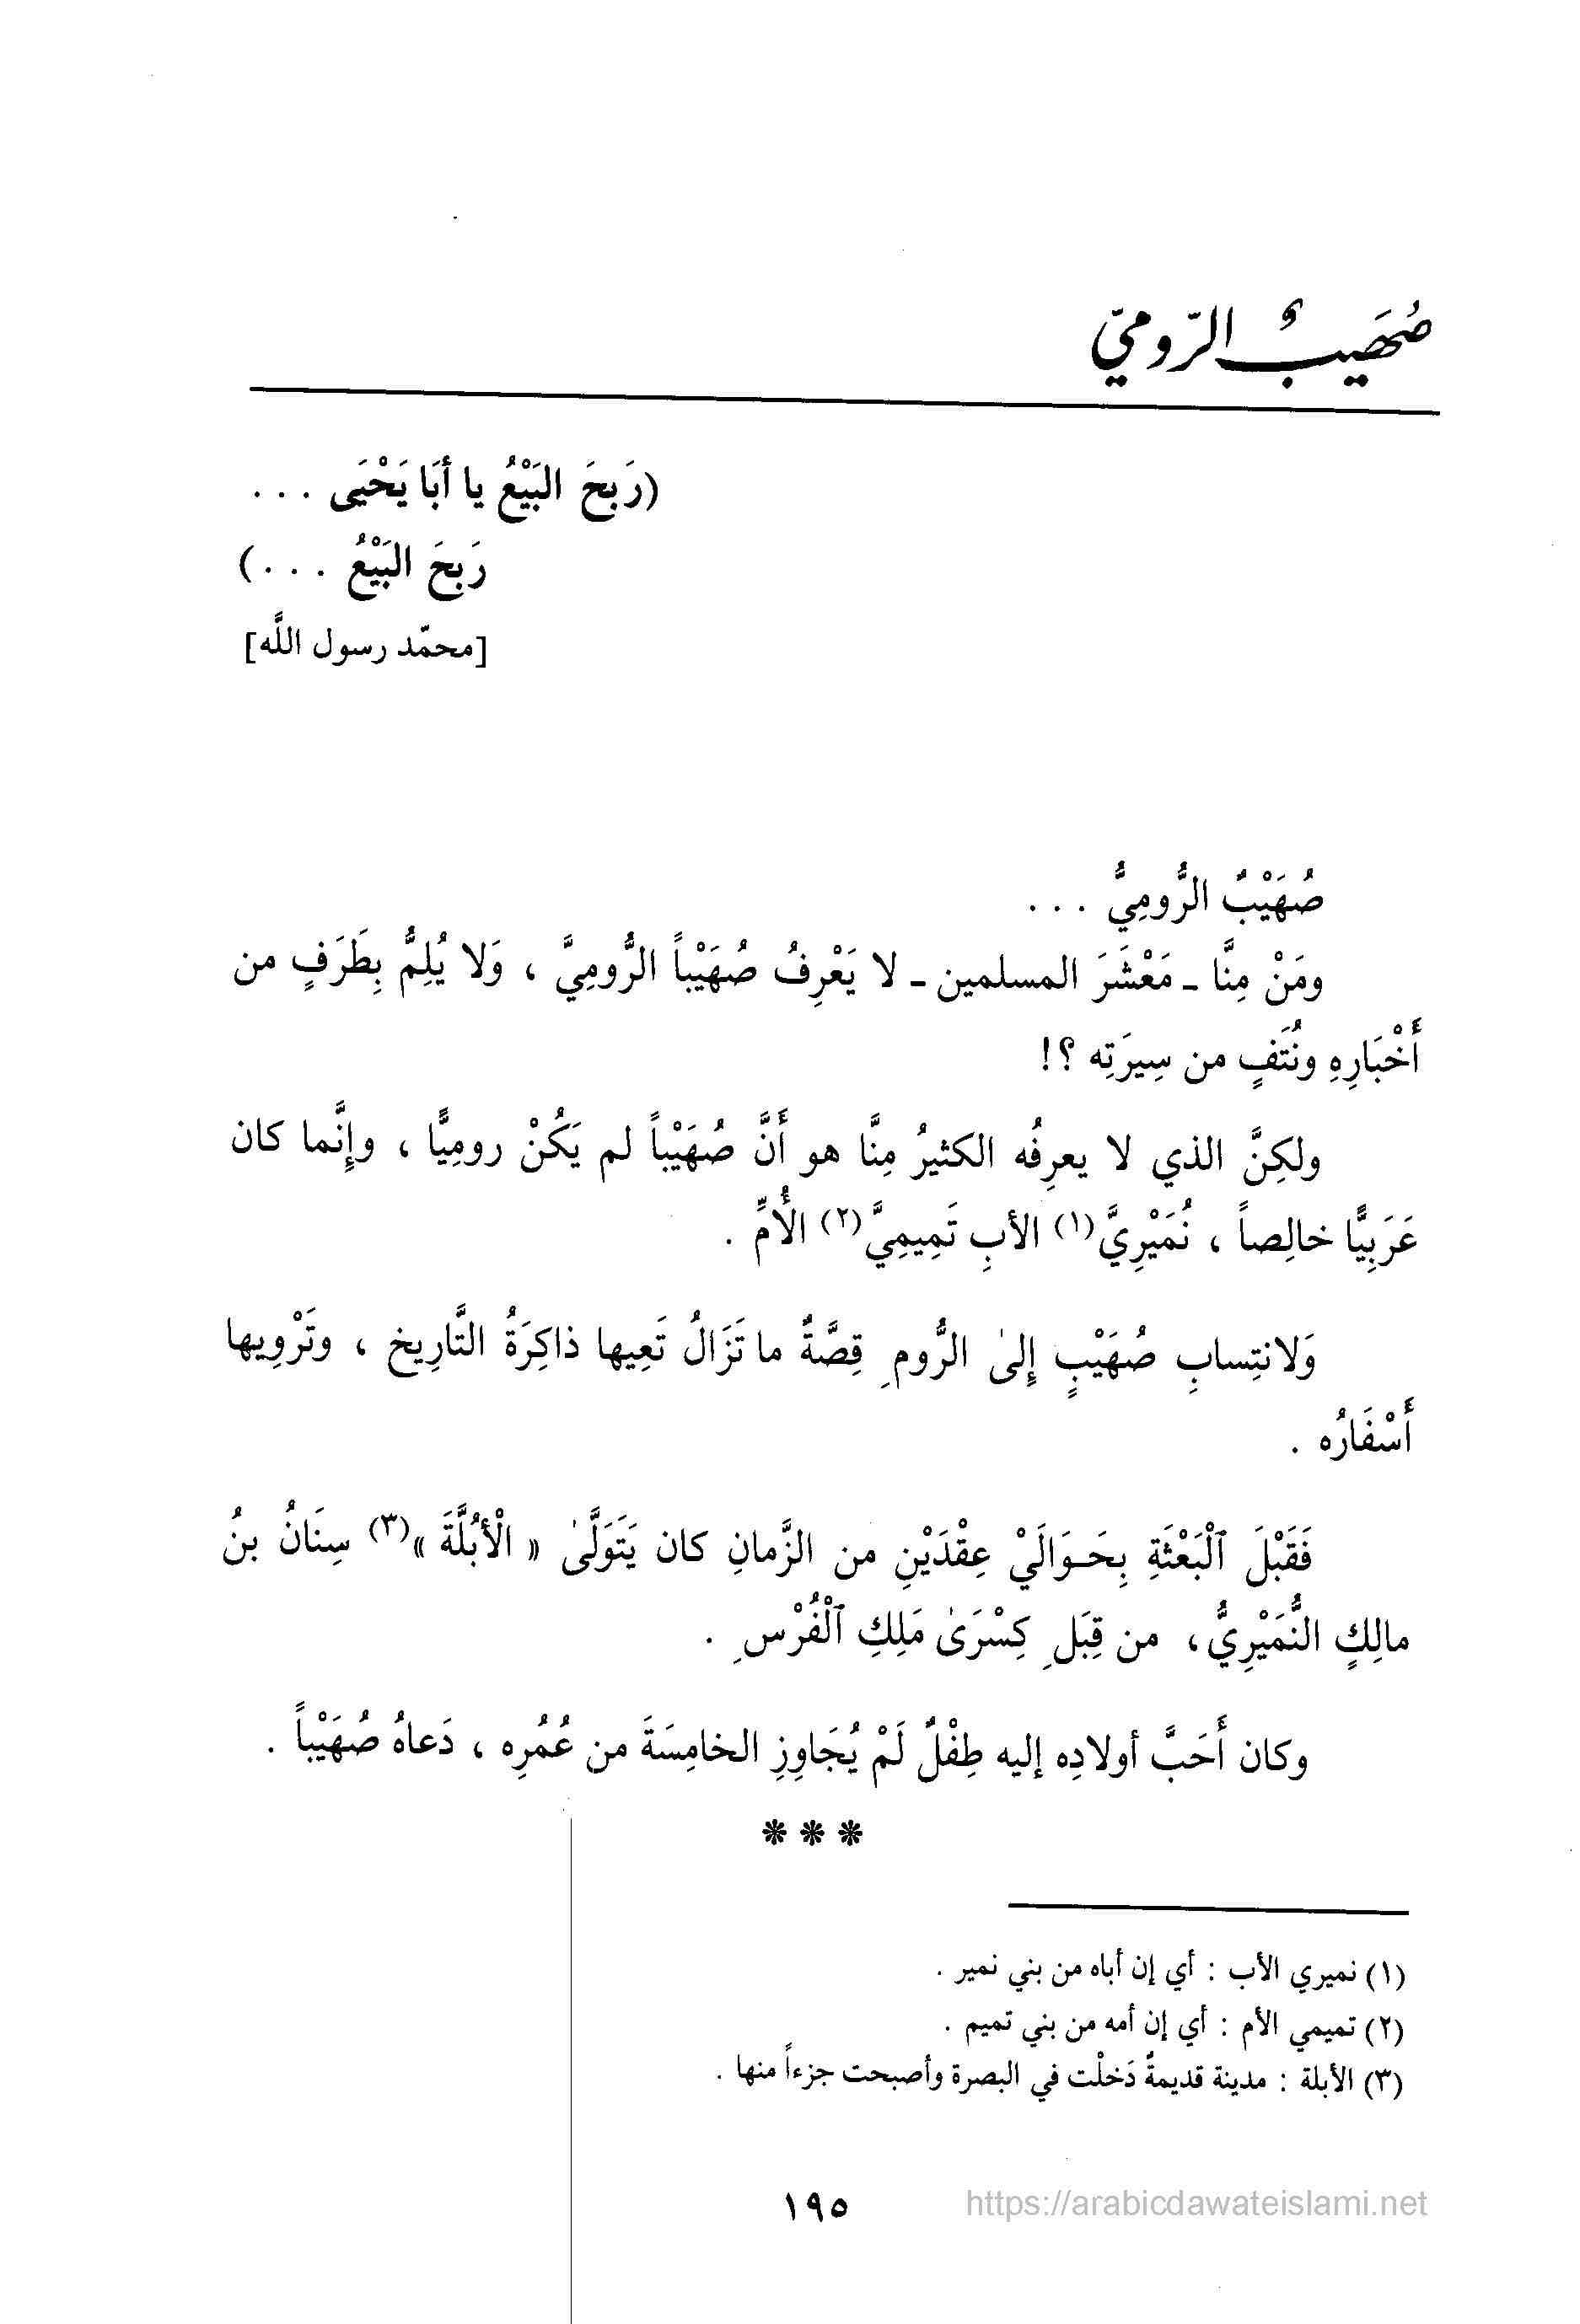 صُهَيبٌ الرّوميّ
(رَبِحَ البَيْعُ يا أبَا يَحْيَى . . .
رَبِحَ البَيْعُ . . .)
[محمّد رسول اللَّه]
صُهَيْبٌ الرُّومِيُّ . . .
ومَنْ مِنَّا ـ مَعْشَرَ المسلمين ـ لا يَعْرِفُ صُهَيْباً الرُّومِيَّ ، وَلا يُلِمُّ بِطَرَفٍ من
أَخْبَارِهِ ونُتَفٍ من سِيرَتِه ؟!
ولكِنَّ الذي لا يعرِفُه الكثيرُ مِنَّا هو أَنَّ صُهَيْباً لم يَكُنْ رومِيًّا ، وإِنَّما كان
عَرَبِيًّا خالِصاً ، نُمَيْرِيَّ(١) الأبِ تَمِيمِيَّ(٢) الأُمِّ .
وَلانتِسابِ صُهَيْبٍ إِلىٰ الرُّومِ قِصَّةٌ ما تَزَالُ تَعِيها ذاكِرَةُ التَّارِيخ ، وتَرْوِيها
أَسْفَارُه .
فَقَبْلَ ٱلْبَعْثَةِ بِحَـوَالَيْ عِقْدَيْنِ من الزَّمانِ كان يَتَوَلَّىٰ « الْأبُلَّةَ »(٣) سِنَانُ بنُ
مالِكٍ النُّمَيْرِيُّ، من قِبَلِ كِسْرَىٰ مَلِكِ ٱلْفُرْسِ .
وكان أَحَبَّ أولادِه إليه طِفْلٌ لَمْ يُجَاوِزِ الخامِسَةَ من عُمُرِه ، دَعاهُ صُهَيْباً .
* * *
(١) نميري الأب : أي إن أباه من بني نمير .
(٢) تميمي الأم : أي إن أمه من بني تميم .
(٣) الأبلة : مدينة قديمةٌ دَخلْت في البصرة وأصبحت جزءاً منها .
١٩٥
https://arabicdawateislami.net